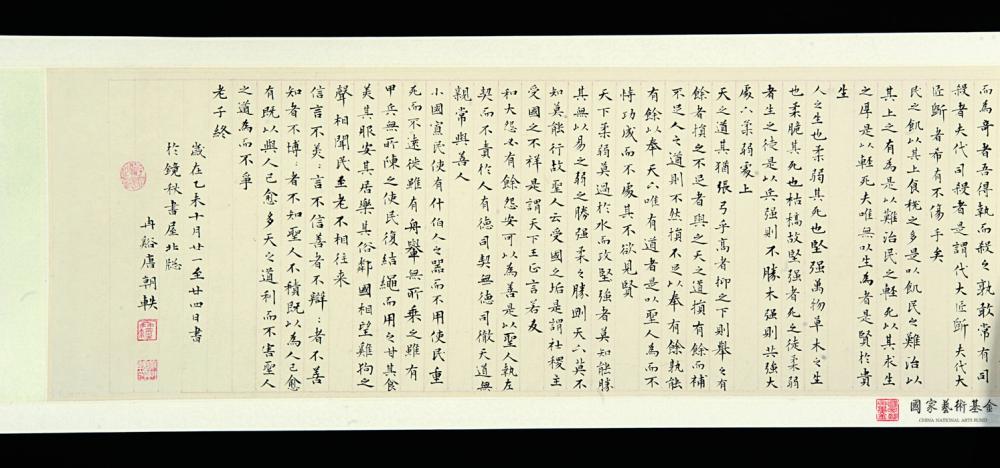 而為奇者吾得執而殺之孰敢常有司
殺者夫代司殺者是謂代大匠斲夫代大
匠斲者希有不傷手矣
民之飢以其上食稅之多是以飢民之難治以
其上之有為是以難治民之輕死以其求生
之厚是以輕死夫唯無以生為者是賢於貴
生
人之生也柔弱其死也堅強萬物草木之生
也柔脆其死也枯槁故堅強者死之徒柔弱
者生之徒是以兵強則不勝木強則共強大
處下柔弱處上
天之道其猶張弓乎高者抑之下則舉之有
餘者損之不足者與之天之道損有餘而補
不足人之道則不然損不足以奉有餘孰能
有餘以奉天下唯有道者是以聖人為而不
恃功成而不處其不欲見賢
天下柔弱莫過於水而攻堅強者莫知能勝
其無以易之弱之勝強柔之勝剛天下莫不
知莫能行故聖人云受國之垢是謂社稷主
受國之不祥是謂天下王正言若反
和大怨必有餘怨安可以為善是以聖人執左
契而不責於人有德司契無德司徹天道無
親常與善人
小國寡民使有什伯人之器而不用使民重
死而不遠徙雖有舟輿無所乘之雖有
甲兵無所陳之使民復結繩而用之甘其食
美其服安其居樂其俗鄰國相望雞狗之
聲相聞民至老不相往來
信言不美美言不信善者不辯辯者不善
知者不博博者不知聖人不積既以為人己愈
有既以與人己愈多天之道利而不害聖人
之道為而不爭
老子終
歲在乙未十月廿一至廿四日書
於鏡秋書屋北牖
冉谿唐朝軼
國家藝術基金
CHINA NATIONAL ARTS FUND